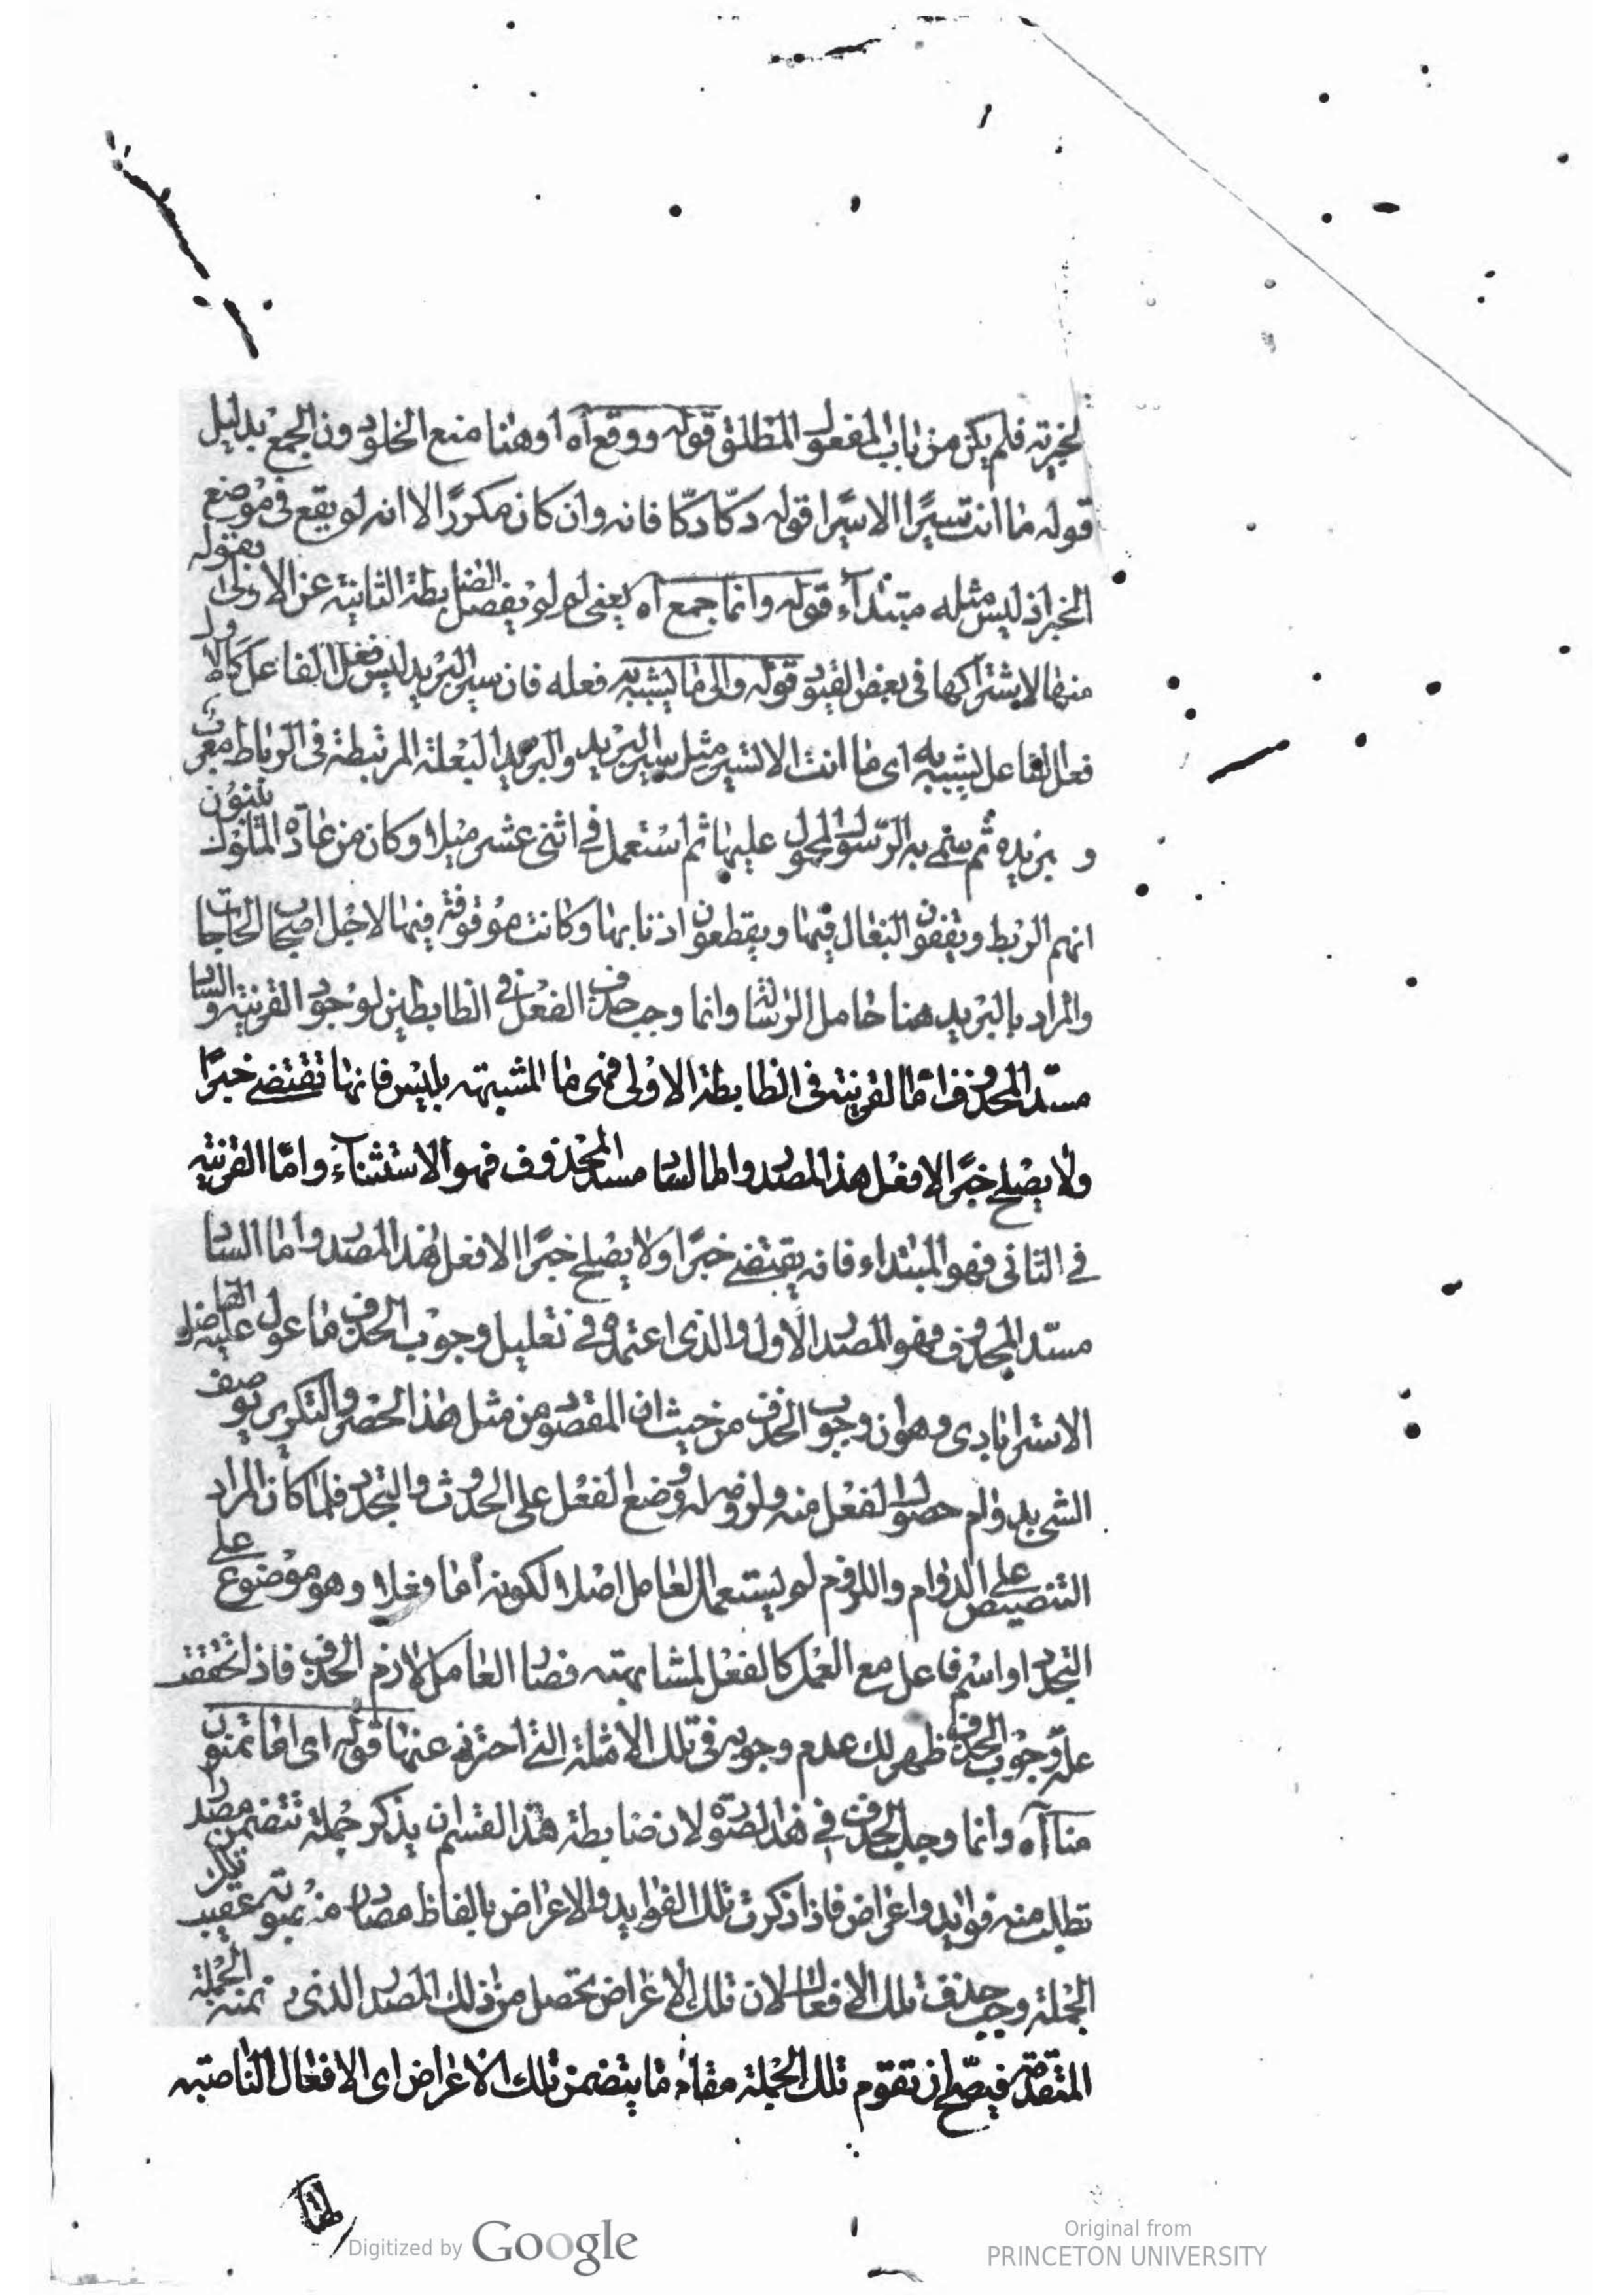 لخبريته فلم يكن من باب المفعول المطلق قوله ووقع آه او هنا منع الخلو دون الجمع بدليل
قوله ما انت تسيرًا الا سيرًا قوله دكّا دكّا فانه وان كان مكررًا الا انه لو يقع فى موضع
الخبر اذ ليس مثله مبتداء قوله وانما جمع آه يعنى لم لو يفصل الضابطة الثانية عن الاولى بقوله
منها لاشتراكها فى بعض القيود قوله والى ما يشبه به فعله فان سير البريد ليس فعل الفاعل كالاول
فعل الفاعل يشبه به اى ما انت الا تسير مثل سير البريد والبريد البغلة المرتبطة فى الرباط معرب
و بزيده ثم سمى به الرسول المحمول عليها ثم استعمل فى اثنى عشر ميلا وكان من عادة الملوك يبنون
انهم الربط ويقفون البغال فيها ويقطعون اذنابها وكانت موقوفة فيها لاجل اصحاب الحاجات
والمراد بالبريد هنا حامل الرسالة وانما وجب حذف الفعل فى الضابطين لوجود القرينة والساد
مسدّ المحذوف امّا القرينة فى الضابطة الاولى فهى ما المشبهته بليس فانها تقتضے خبرًا
ولا يصلح خبرًا الا فعل هذا المصدر واما الساد مسد المحذوف فهو الاستثناء وامّا القرينة
فے الثانى فهو المبتداء فانه يقتضے خبرًا ولا يصلح خبرًا الا فعل هذا المصدر واما الساد
مسدّ المحذوف فهو المصدر الاول والذى اعتمد فے تعليل وجوب الحذف ما عول عليه الفاضل
الاسترابادى وهو ان وجوب الحذف من حيث ان المقصود من مثل هذا الحصر والتكرير توصيف
الشى بدوام حصول الفعل منه ولزومه له وضع الفعل على الحدوث والتجدد فلما كان المراد
التنصيص على الدوام واللزوم لم يستعمل العامل اصلا لكونه اما فعلا وهو موضوع على
التجدد او اسم فاعل مع العمل كالفعل لمشابهته فصار العامل لازم الحذف فاذا تحققت
علة وجوب الحذف ظهر لك عدم وجوبه فى تلك الامثلة التے احترز عنها قوله اى اما تمنون
منا آه وانما وجب الحذف فے هذه الصورة لان ضابطة هذا القسم ان يذكر جملة تتضمن مصدرا
تطلب منه فوايد واغراض فاذا ذكرت تلك الفوايد والاغراض بالفاظ مصادر منصوبة عقيب تلك
الجملة وجب حذف تلك الافعال لان تلك الاغراض تحصل من ذلك المصدر الذى تضمنه الجملة
المتقدمة فيصح ان تقوم تلك الجملة مقام ما يتضمن تلك الاغراض اى الافعال الناصبة
Digitized by Google
Original from
PRINCETON UNIVERSITY